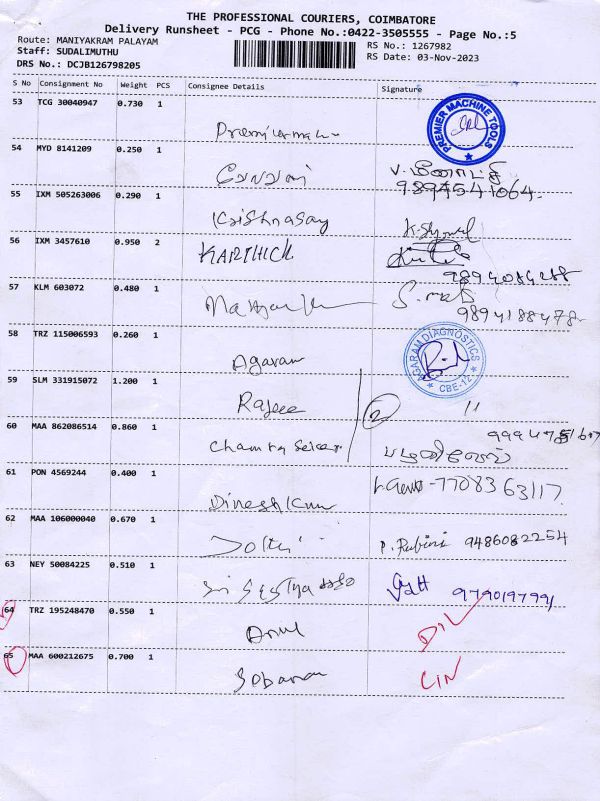 THE PROFESSIONAL COURIERS, COIMBATORE
Delivery Runsheet - PCG - Phone No.:0422-3505555 - Page No.:5
Route: MANIYAKRAM PALAYAM
Staff: SUDALIMUTHU
DRS No.: DCJB126798205
RS No.: 1267982
RS Date: 03-Nov-2023
S No Consignment No Weight PCS Consignee Details Signature
53 TCG 30040947 0.730 1
PREMIER MACHINE TOOLS
54 MYD 8141209 0.250 1
வேலவன் V. மீனாட்சி
9894541064
55 IXM 505263006 0.290 1
Krishnasay
56 IXM 3457610 0.950 2 KARTHICK
9894084288
57 KLM 603072 0.480 1
9894188478
58 TRZ 115006593 0.260 1
Agaram AGARAM DIAGNOSTICS CBE-12
59 SLM 331915072 1.200 1
Rajeee 2 11
60 MAA 862086514 0.860 1
Chandra Sekar
61 PON 4569244 0.400 1
Dinesh Kumar -7708363117
62 MAA 106000040 0.670 1
P. Rubini 9486082254
63 NEY 50084225 0.510 1
9790197991
64 TRZ 195248470 0.550 1
Arul D/L
65 MAA 600212675 0.700 1
Sobanan C/N